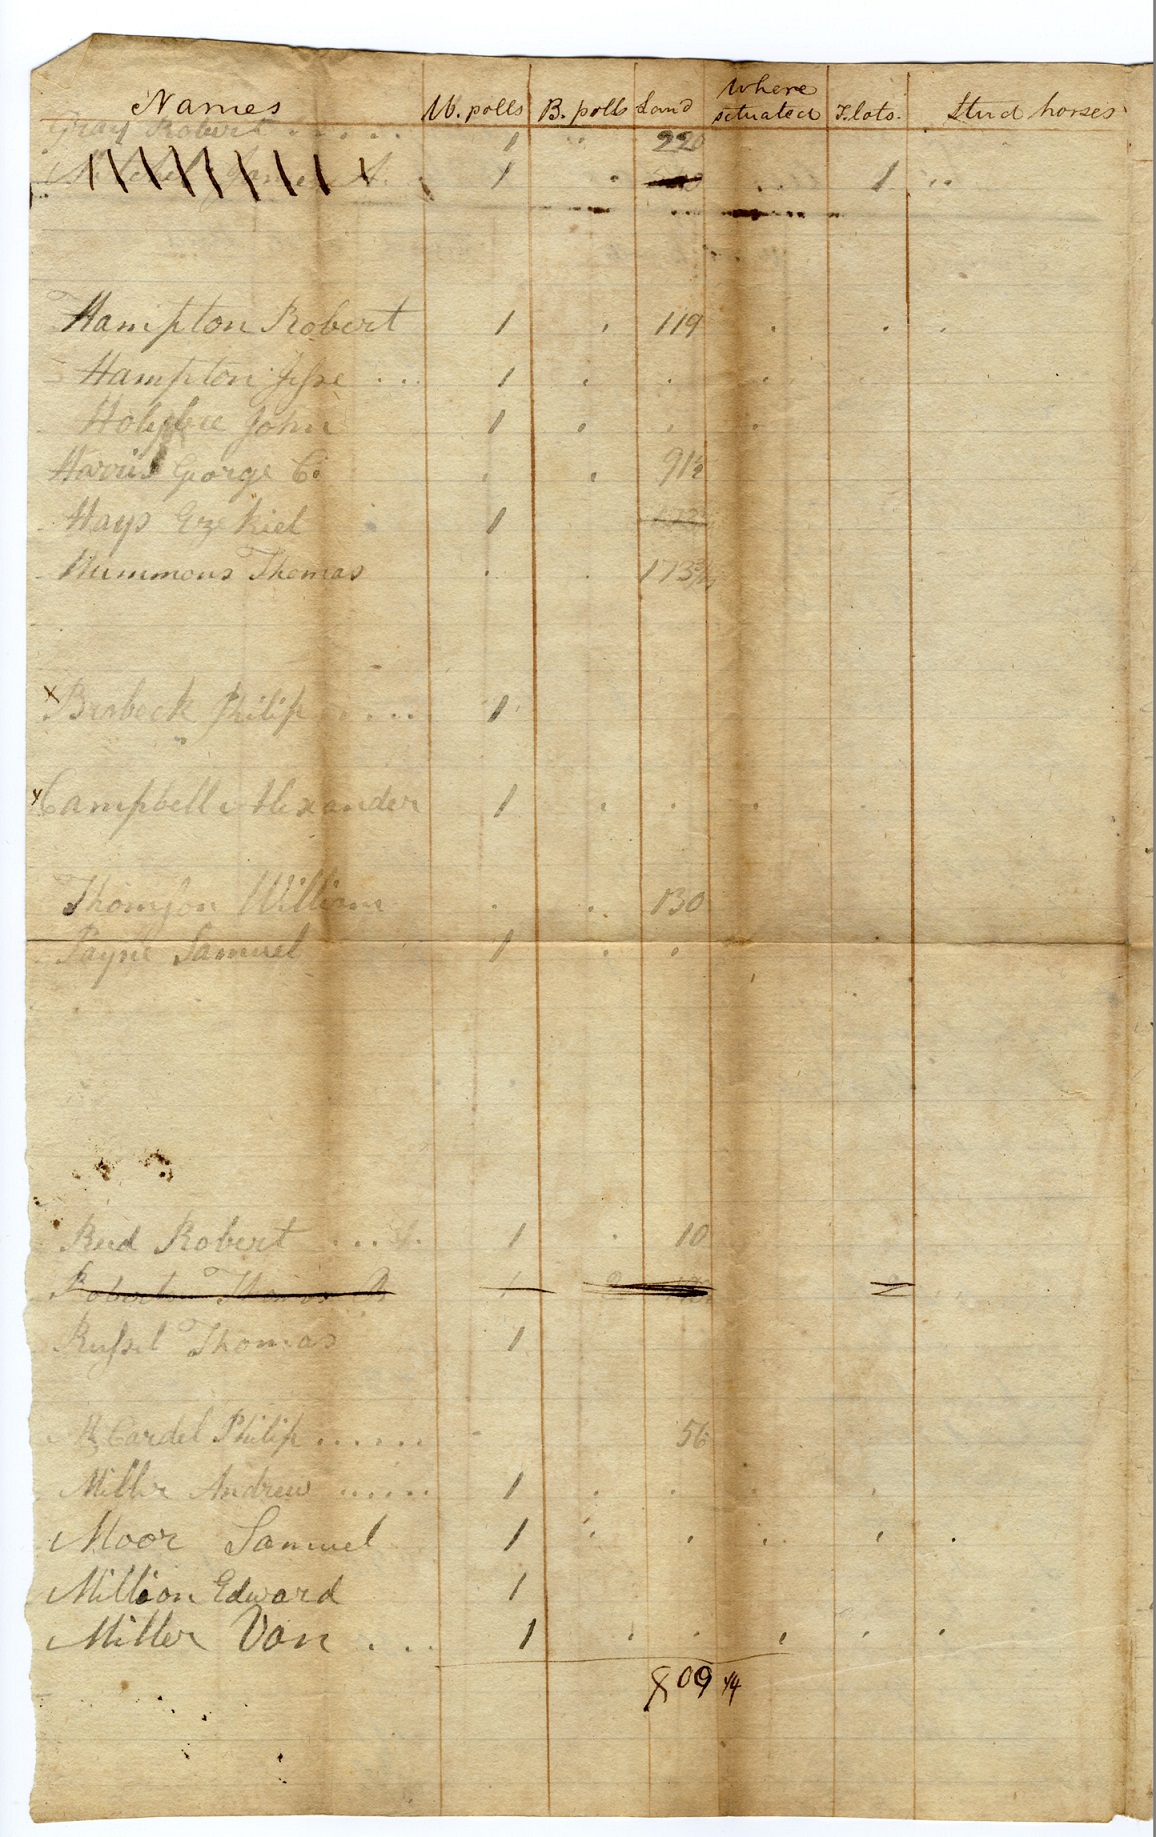 Names W. polls B. polls Land Where situated T. lots. Stud horses
Gray Robert 1 220
1 1
Hampton Robert 1 119
Hampton Jesse 1
John 1
Harris George C. 91½
Hays Ezekiel 1
Hummons Thomas 173¾
x Brobeck Philip 1
x Campbell Alexander 1
Thomson William 130
Payne Samuel 1
Reid Robert 1 10
Thomas 1
Russel Thomas 1
McCardel Philip 56
Miller Andrew 1
Moor Samuel 1
Million Edward 1
Miller Van 1
809 ¼